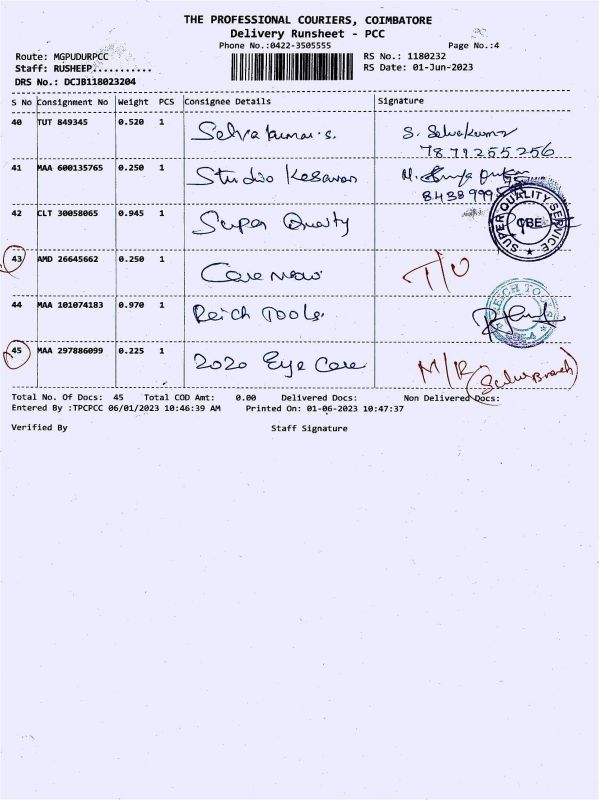 THE PROFESSIONAL COURIERS, COIMBATORE
Delivery Runsheet - PCC
Phone No.:0422-3505555 Page No.:4
Route: MGPUDURPCC RS No.: 1180232
Staff: RUSHEEP........... RS Date: 01-Jun-2023
DRS No.: DCJB118023204
S No Consignment No Weight PCS Consignee Details Signature
40 TUT 849345 0.520 1 Selvakumar.s. S. Selvakumar
7871255256
41 MAA 600135765 0.250 1 Studio Kesavan M.
84389995
42 CLT 30058065 0.945 1 Super Quality
SUPER QUALITY SERVICE
CBE
43 AMD 26645662 0.250 1 Care now T/O
44 MAA 101074183 0.970 1 Reich Tools
REICH TOOLS
45 MAA 297886099 0.225 1 2020 Eye Care M/R
(Sulur Branch)
Total No. Of Docs: 45 Total COD Amt: 0.00 Delivered Docs: Non Delivered Docs:
Entered By :TPCPCC 06/01/2023 10:46:39 AM Printed On: 01-06-2023 10:47:37
Verified By Staff Signature